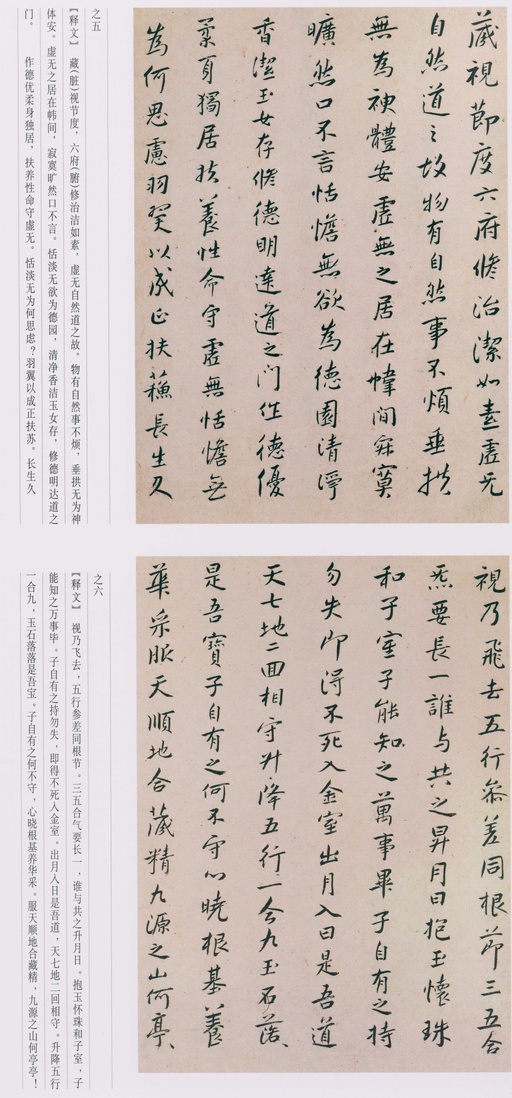 藏視節度六府脩治潔如素虛无
自然道〻故物有自然事不煩垂拱
無為神體安虛無之居在幃間寂寞
曠然口不言恬憺無欲為德園清淨
香潔玉女存脩德明達道之門作德優
柔身獨居扶養性命守虛無恬憺無
為何思慮羽翼以成正扶蘓長生久
之五
【释文】 藏(脏)视节度,六府(腑)修治洁如素,虚无自然道之故。物有自然事不烦,垂拱无为神
体安。虚无之居在帏间,寂寞旷然口不言。恬淡无欲为德园,清净香洁玉女存,修德明达道之
门。 作德优柔身独居,扶养性命守虚无。恬淡无为何思虑?羽翼以成正扶苏。长生久
視乃飛去五行參差同根節三五合
炁要長一誰与共之昇月日抱玉懷珠
和子室子能知之萬事畢子自有之持
勿失即得不死入金室出月入日是吾道
天七地二回相守升降五行一合九玉石落〻
是吾寶子自有之何不守心曉根基養
華采服天順地合藏精九源之山何亭〻
之六
【释文】 视乃飞去,五行参差同根节。三五合气要长一,谁与共之升月日。抱玉怀珠和子室,子
能知之万事毕。子自有之持勿失,即得不死入金室。出月入日是吾道,天七地二回相守。升降五行
一合九,玉石落落是吾宝。子自有之何不守,心晓根基养华采。服天顺地合藏精,九源之山何亭亭!